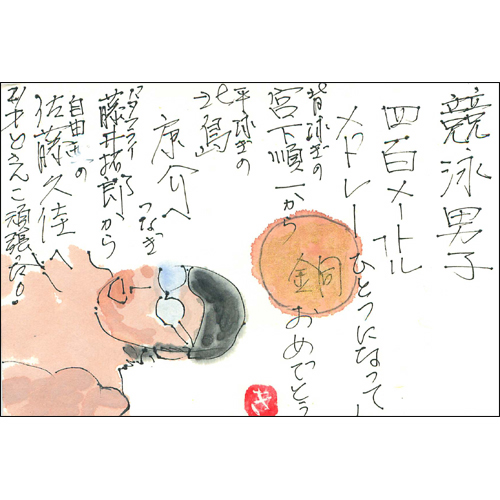 競泳男子
四百メートル
メドレー ひとつになって
銅 おめでとう
背泳ぎの
宮下順一から
平泳ぎの
北島
康介へ
つなぎ
バタフライ
藤井拓郎から
自由形の
佐藤久佳へ
頑張った。
き